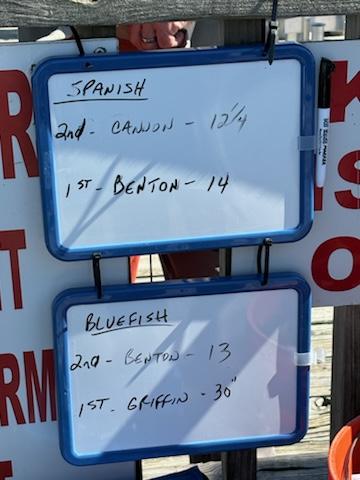 SPANISH
2nd - CANNON - 12 1/4
1ST - BENTON - 14
BLUEFISH
2nd - BENTON - 13
1ST - GRIFFIN - 30"
R
T
RM
K
S
O